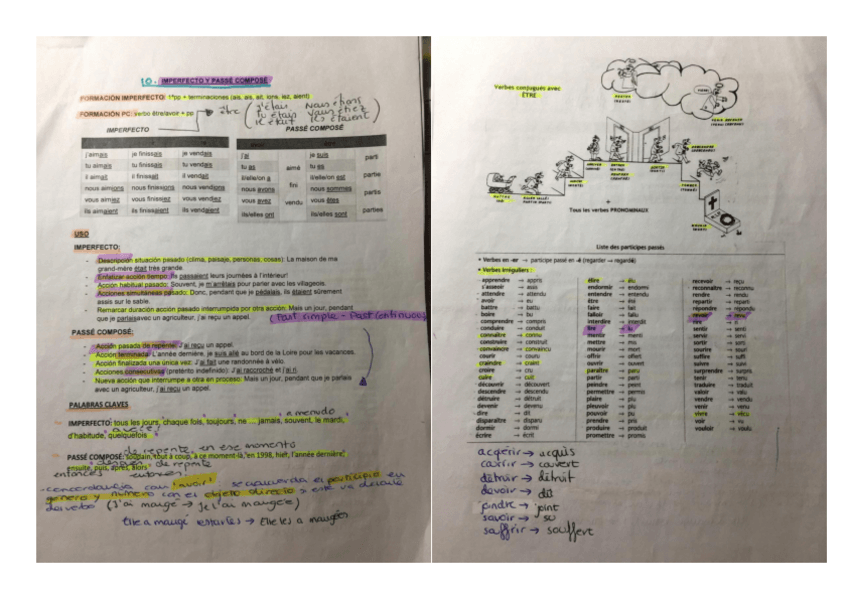 10.- IMPERFECTO Y PASSÉ COMPOSÉ
FORMACIÓN IMPERFECTO: 1ªpp + terminaciones (ais, ais, ait, ions, iez, aient)
FORMACIÓN PC: verbo être/avoir + pp
être
j'étais Nous étions
tu étais Vous étiez
il était Ils étaient
IMPERFECTO
PASSÉ COMPOSÉ
j'aimais je finissais je vendais
tu aimais tu finissais tu vendais
il aimait il finissait il vendait
nous aimions nous finissions nous vendions
vous aimiez vous finissiez vous vendiez
ils aimaient ils finissaient ils vendaient
j'ai je suis
tu as tu es
il/elle/on a il/elle/on est
nous avons nous sommes
vous avez vous êtes
ils/elles ont ils/elles sont
aimé
fini
vendu
parti
partie
partis
parties
USO
IMPERFECTO:
- Descripción situación pasado (clima, paisaje, personas, cosas): La maison de ma
grand-mère était très grande.
- Enfatizar acción tiempo: Ils passaient leurs journées à l'intérieur!
- Acción habitual pasado: Souvent, je m'arrêtais pour parler avec les villageois.
- Acciones simultaneas pasado: Donc, pendant que je pédalais, ils étaient sûrement
assis sur le sable.
- Remarcar duración acción pasado interrumpida por otro acción: Mais un jour, pendant
que je parlais avec un agriculteur, j'ai reçu un appel.
(Past simple - Past continuous)
PASSÉ COMPOSÉ:
- Acción pasada de repente: J'ai reçu un appel.
- Acción terminada: L'année dernière, je suis allé au bord de la Loire pour les vacances.
- Acción finalizada una única vez: J'ai fait une randonnée à vélo.
- Acciones consecutivas (pretérito indefinido): J'ai raccroché et j'ai ri.
- Nueva acción que interrumpe a otra en proceso: Mais un jour, pendant que je parlais
avec un agriculteur, j'ai reçu un appel.
PALABRAS CLAVES
a menudo
IMPERFECTO: tous les jours, chaque fois, toujours, ne ... jamais, souvent, le mardi,
d'habitude, quelquefois
de repente, en ese momento
PASSÉ COMPOSÉ: soudain, tout à coup, à ce moment-là, en 1998, hier, l'année dernière,
ensuite, puis, après, alors
entonces
- concordancia con 'avoir' se concuerda el participio en
género y número con el objeto directo si este va delante
del verbo (J'ai mangé → je l'ai mangée)
Elle les a mangées
Verbes conjugués avec
ÊTRE
+
Tous les verbes PRONOMINAUX
Liste des participes passés
• Verbes en -er → participe passé en -é (regarder → regardé)
• Verbes irréguliers :
apprendre → appris
s'asseoir → assis
attendre → attendu
avoir → eu
battre → battu
boire → bu
comprendre → compris
conduire → conduit
connaître → connu
construire → construit
convaincre → convaincu
courir → couru
craindre → craint
croire → cru
cuire → cuit
découvrir → découvert
descendre → descendu
détruire → détruit
devenir → devenu
dire → dit
disparaître → disparu
dormir → dormi
écrire → écrit
élire → élu
endormir → endormi
entendre → entendu
être → été
faire → fait
falloir → fallu
interdire → interdit
lire → lu
mentir → menti
mettre → mis
mourir → mort
offrir → offert
ouvrir → ouvert
paraître → paru
partir → parti
peindre → peint
permettre → permis
plaire → plu
pleuvoir → plu
pouvoir → pu
prendre → pris
produire → produit
promettre → promis
recevoir → reçu
reconnaître → reconnu
rendre → rendu
repartir → reparti
répondre → répondu
rire → ri
sentir → senti
servir → servi
sortir → sorti
sourire → souri
suffire → suffi
suivre → suivi
surprendre → surpris
tenir → tenu
traduire → traduit
valoir → valu
vendre → vendu
venir → venu
vivre → vécu
voir → vu
vouloir → voulu
acqérir → acquis
couvrir → couvert
détruir → détruit
devoir → dû
joindre → joint
savoir → su
souffrir → souffert